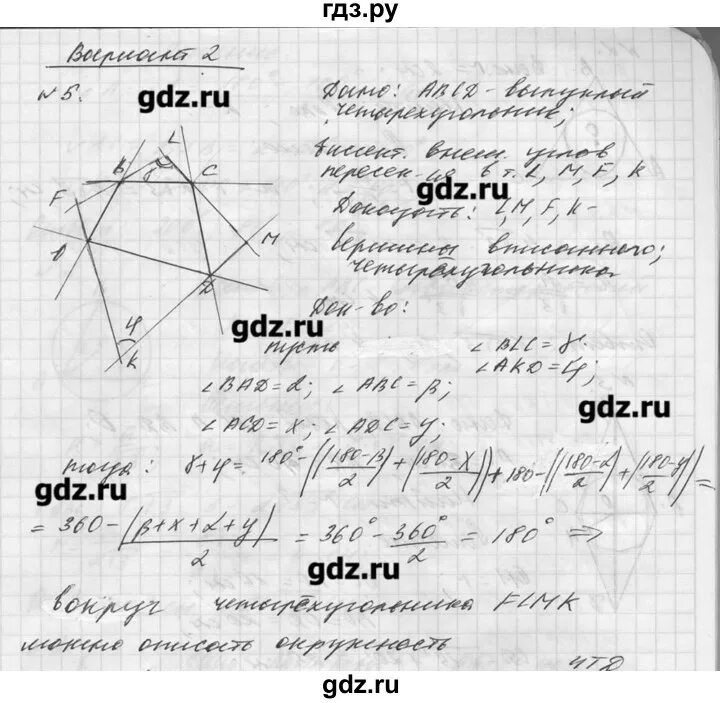 гдз.ру
Вариант 2
№5.
gdz.ru
Дано: ABCD - выпуклый
четырехугольник;
биссект. внеш. углов
пересек-ся в т. L, M, F, K
gdz.ru
Доказать: L, M, F, K -
вершины вписанного
четырёхугольника;
L
B
γ
C
F
A
M
D
φ
K
Док-во:
gdz.ru
пусть
∠BLC = γ
∠AKD = φ;
∠BAD = α; ∠ABC = β;
gdz.ru
∠ACD = x; ∠ADC = y;
тогда: γ + φ = 180° - ((180-β)/2 + (180-x)/2) + 180 - ((180-α)/2 + (180-y)/2) =
gdz.ru
= 360 - (β+x+α+y)/2 = 360° - 360°/2 = 180° ⇒
gdz.ru
вокруг четырёхугольника FLMK
можно описать окружность
чтд
gdz.ru